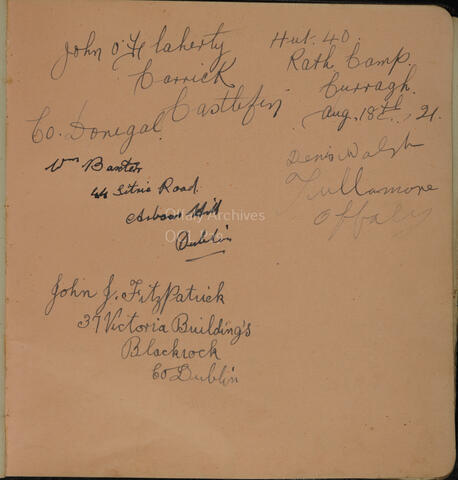 John O'Flaherty
Carrick
Castlefin
Co. Donegal
Hut. 40.
Rath Camp.
Curragh.
Aug. 18th, 21.
Denis Walsh
Tullamore
Offaly
Wm Baxter
44 Sitric Road.
Arbour Hill
Dublin
Offaly Archives
John J. FitzPatrick
37 Victoria Building's
Blackrock
Co Dublin